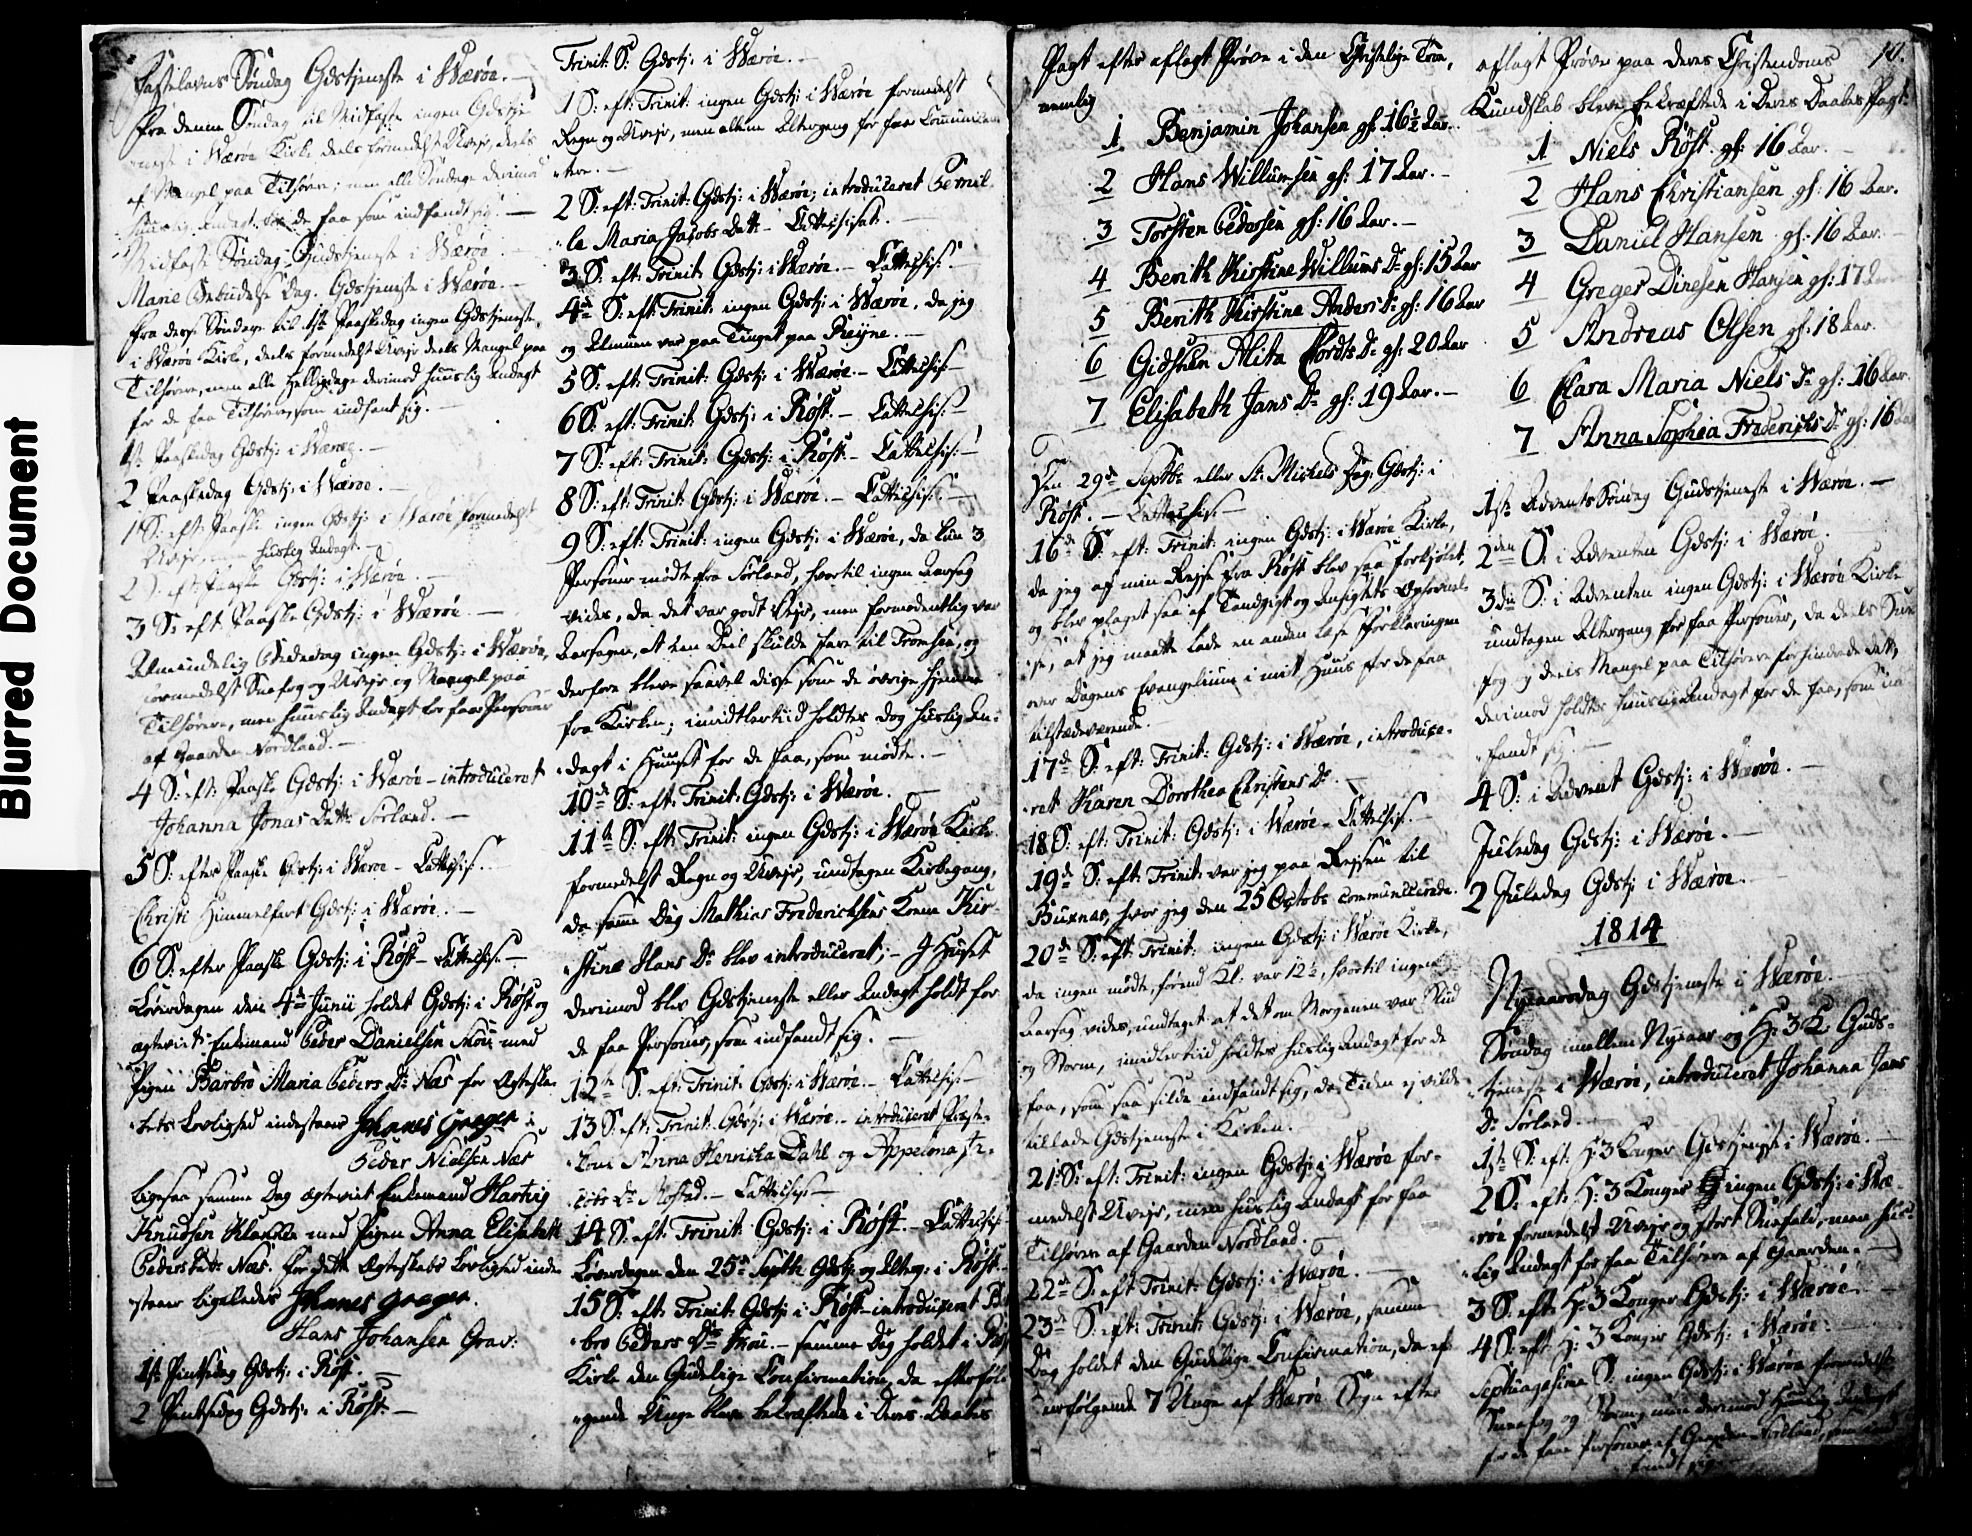 Blurred Document
Fastelavns Søndag Gdstjeneste i Værøe.
Fra denne Søndag til Midfaste ingen Gdstje-
neste i Værøe Kirke deels formedelst Uveyr, deels
af Mangel paa Tilhørere; men alle Søndage derimod
huuslig Andagt for de faa som indfandt sig.
Midfaste Søndag Gudstjeneste i Værøe
Mariæ Bebudelse Dag. Gdstjeneste i Værøe.
Fra dese Søndage til 1ste Paaskedag ingen Gdstjeneste
i Værøe Kirke, deels formedelst Uveyr deels Mangel paa
Tilhørere, men alle Helligdage derimod huuslig Andagt
for de faa Tilhørere, som indfant sig.
1ste Paaskedag Gdstj: i Værøe.
2 Paaskedag Gdstj: i Værøe.
1 S: eft: Paaske ingen Gdstj: i Værøe formedelst
Uveyr, men huslig Andagt.
2 S: eft: Paaske Gdstj: i Værøe.
3 S: eft Paaske Gdstj: i Værøe
Almindelig Bededag ingen Gdstj: i Værøe,
formedelst Snefog og Uveyr og Mangel paa
Tilhørere, men huuslig Andagt for faa Personer
af Gaarden Nordland.
4 S: eft: Paaske Gdstj: i Værøe - introduceret
Johanna Jonas Datt: Sørland.
5 S: efter Paaske Gdstj: i Værøe - Cattechis:
Christi Himmelfart Gdstj: i Værøe.
6 S: efter Paaske Gdstj: i Røst - Cattechis:
Løverdagen den 4de Junii holdet Gdstj: i Røst og
ægteviet Enkemand Peder Danielsen Mou med
Pigen Barbro Maria Peders Dr Næs for Ægteska-
bets Lovlighed indestaaer Johanes Greger
Peder Nielsen Næs
Ligesaa samme Dag ægteviet Enkemand Hartvig
Knudsen Klakken med Pigen Anna Elisabeth
Peders Datt: Næs. for dette Ægteskabs Lovlighed inde
staaer ligeledes Johanes Greger.
Hans Johansen Grav:
1ste Pintsedag Gdstj: i Røst.
2 Pintsedag Gdstj: i Røst.
Trinit: S: Gdstj: i Værøe.
1 S: eft: Trinit: ingen Gdstj: i Værøe formedelst
Regn og Uveyr, men allene Altergang for faa Communican
ter.
2 S: eft: Trinit: Gdstj: i Værøe; introduceret Pernil-
le Maria Jacobs Datt - Cattechisat:
3 S: eft: Trinit: Gdstj: i Værøe. - Cattechis:
4de S: eft: Trinit: ingen Gdstj: i Værøe, da jeg
og Almuen var paa Tinget paa Reyne.
5 S: eft: Trinit: Gdstj: i Værøe. - Cattechis:
6 S: eft: Trinit: Gdstj: i Røst. - Cattechis:
7 S: eft: Trinit: Gdstj: i Røst. - Cattechis:
8 S: eft: Trinit: Gdstj: i Værøe. - Cattechis:
9 S: eft: Trinit: ingen Gdstj: i Værøe, da kun 3
Personer mødte fra Sørland, hvortil ingen Aarsag
vides, da det var godt Veyr, men formodentlig var
Aarsagen, at een Deel skulde fare til Tromsen, og
derfore bleve saavel disse som de øvrige hjemme
fra Kirken; imidlertiid holdtes dog huslig An-
dagt i Huuset for de faa, som mødte.
10de S: eft: Trinit: Gdstj: i Værøe.
11te S: eft: Trinit: ingen Gdstj: i Værøe Kirke
formedelst Regn og Uveyr, undtagen Kirkegang,
da samme Dag Mathias Frederichsens Kone Kir-
stine Hans Dr blev introduceret; - I Huset
derimod blev Gdstjeneste eller Andagt holdt for
de faa Personer, som indfandt sig.
12te S: eft: Trinit: Gdstj: i Værøe. - Cattechis:
13 S: eft: Trinit: Gdstj: i Værøe. - introduceret Præste-
kone Anna Henricha Dahl og Appelona
Dr Mostad. - Cattechis:
14 S: eft: Trinit: Gdstj: i Røst. - Cattechis:
Løverdagen den 25de Septbr Gdstj: og Alterg: i Røst.
15 S: eft: Trinit: Gdstj: i Røst - introduceret Bar
bro Peders Dr Mou. - samme Dag holdet i Røst
Kirke den Gudelige Confirmation, da efterføl-
gende Unge bleve bekræftede i Deres Daabes
Pagt efter aflagt Prøve i den Christelige Troe,
nemlig
1 Benjamin Johansen gl: 16½ Aar.
2 Hans Willumsen gl: 17 Aar.
3 Torsten Pedersen gl: 16 Aar.
4 Berith Kirstine Willums Dr gl: 15 Aar
5 Berith Kirstine Anders Dr gl: 16 Aar
6 Gidsken Alita Cordts Dr gl: 20 Aar
7 Elisabeth Jans Dr gl: 19 Aar.
Den 29de Septbr eller St: Michels Dag Gdstj: i
Røst. - Cattechis:
16de S: eft: Trinit: ingen Gdstj: i Værøe Kirke,
da jeg af min Reyse fra Røst blev saa forkjølet,
og blev plaget saa af Tandgigt og Ansigtets Ophovnel-
se, at jeg maatte lade en anden læse Forklaringen
over Dagens Evangelium i mit Huus for de faa
tilstedeværende.
17de S: eft: Trinit: Gdstj: i Værøe, introduce-
ret Karen Dorothea Christens Dr.
18 S: eft: Trinit: Gdstj: i Værøe - Cattechis:
19de S: eft: Trinit: var jeg paa Reysen til
Buxnæs, hvor jeg den 25 Octobr communicerede.
20de S: eft: Trinit: ingen Gdstj: i Værøe Kirke,
da ingen mødte, førend Kl: var 12½, hvortil ingen
Aarsag vides, undtaget at det om Morgenen var Slud
og Storm, imidlertiid holdtes huslig Andagt for de
faa, som saa silde indfandt sig, da Tiden ej vilde
tillade Gdstjeneste i Kirken.
21 S: eft: Trinit: ingen Gdstj: i Værøe for-
medelst Uveyr, men huslig Andagt for faa
Tilhørere af Gaarden Nordland.
22de S: eft Trinit: Gdstj: i Værøe.
23de S: eft: Trinit: Gdstj: i Værøe, samme
Dag holdet den Gudelige Confirmation, da ef-
terfølgende 7 Unge af Værøe Sogn efter
10.
aflagt Prøve paa deres Christendoms
Kundskab bleve bekræftede i Deres Daabes Pagt
1 Niels Röst. gl: 16 Aar.
2 Hans Christiansen gl: 16 Aar.
3 Daniel Hansen gl: 16 Aar.
4 Greger Dinesen Hansen gl: 17 Aar
5 Andreas Olsen gl: 18 Aar.
6 Clara Maria Niels Dr gl: 16 Aar.
7 Anna Sophia Frederichs Dr gl: 16 Aar
1ste Advents Søndag Gudstjeneste i Værøe.
2den S: i Adventen Gdstj: i Værøe.
3die S: i Adventen ingen Gdstj: i Værøe Kirke
undtagen Altergang for faa Personer, da deels Snee
fog og deels Mangel paa Tilhørere forhindrede dette,
derimod holdtes huuslig Andagt for de faa, som ind
fandt sig.
4 S: i Advent Gdstj: i Værøe.
Juledag Gdstj: i Værøe.
2 Juledag Gdstj: i Værøe.
1814
Nyeaarsdag Gdstjeneste i Værøe.
Søndag imellem Nyeaar og H: 3 K: Guds-
tjeneste i Værøe, introduceret Johanna Jans
Dr Sørland.
1ste S: eft: H: 3 Konger Gdstjeneste i Værøe.
2 S: eft: H: 3 Konger ingen Gdstj: i Væ-
røe formedelst Uveyr og stort Sneefald, men hus-
lig Andagt for faa Tilhørere af Gaarden.
3 S: eft: H: 3 Konger Gdstj: i Værøe.
4 S: eft: H: 3 Konger Gdstj: i Værøe.
Septuagesima S: ingen Gdstj: i Værøe formedelst
Sneefog og Storm, men derimod huuslig Andagt
for de faa Personer af Gaarden Nordland, som ind
fandt sig.